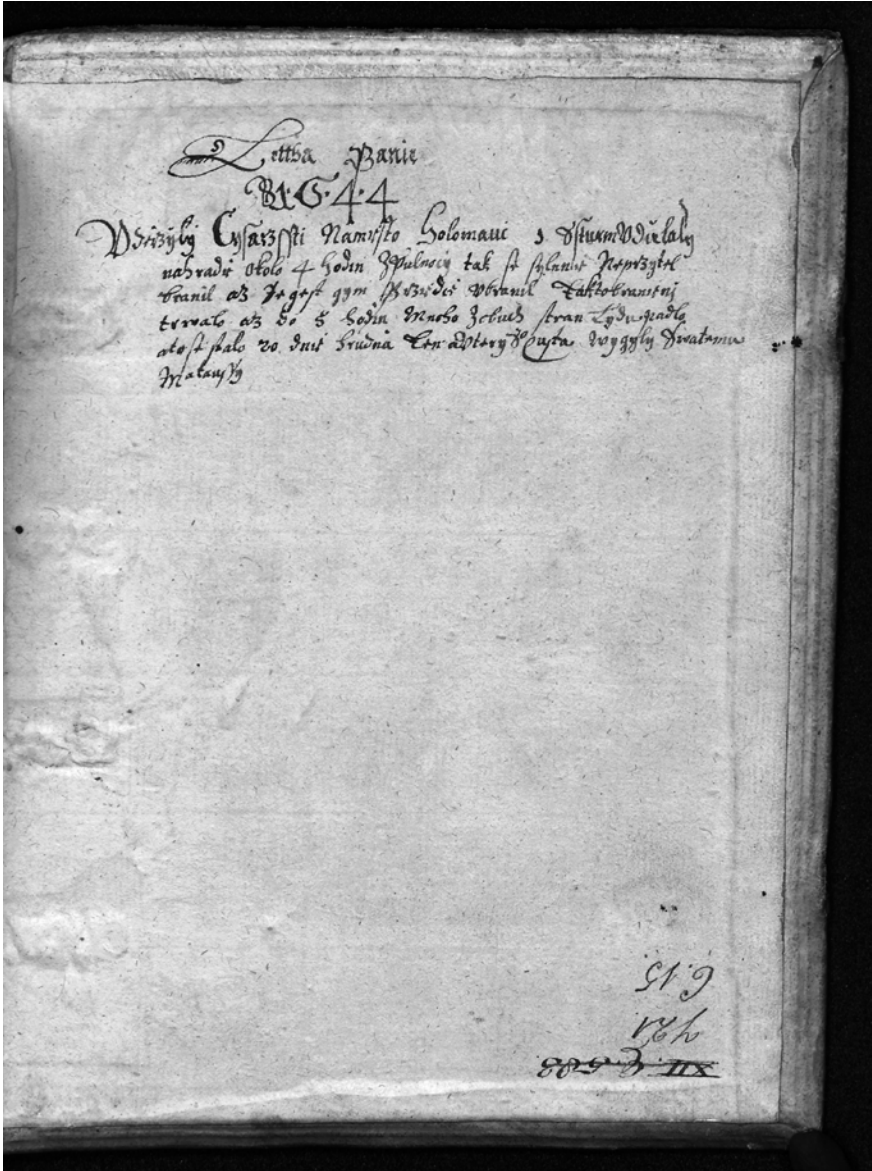 Lettha Panie
1.6.4.4
Vderzyly Cysarzssti Namiesto Holomauc 1 Ssturm Vdielaly
nahradie okolo 4 hodin Zpulnocy tak se sylnie Neprzytel
branil az Ze gest gym Przedcie vbranil taktobranienj
trwalo az do 8 hodin Mnoho Zobuch stran Lydu padlo
atose stalo 20 dnie hrudna ten autery wygyly Swatemu
Mataussy
6.15
421
XII C. 588